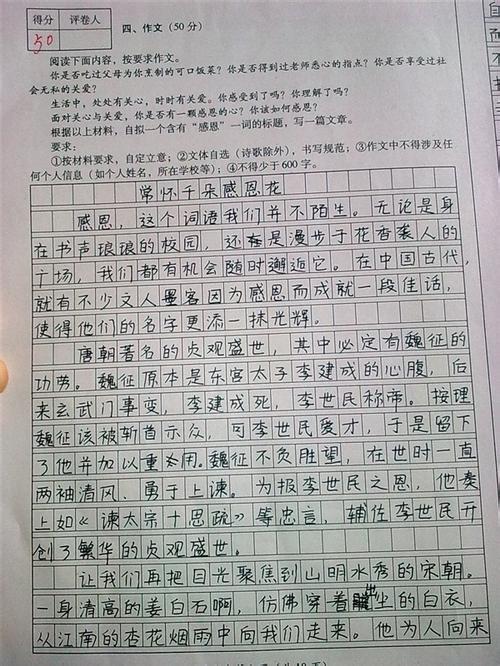 得分 评卷人
50
四、作文(50分)
阅读下面内容，按要求作文。
你是否吃过父母为你烹制的可口饭菜？你是否得到过老师悉心的指点？你是否享受过社
会无私的关爱？
生活中，处处有关心，时时有关爱。你感受到了吗？你理解了吗？
面对关心与关爱，你是否有一颗感恩的心？你该如何感恩？
根据以上材料，自拟一个含有“感恩”一词的标题，写一篇文章。
要求：
①按材料要求，自定立意；②文体自选（诗歌除外），书写规范；③作文中不得涉及任
何个人信息（如个人姓名，所在学校等）；④不得少于600字。
常怀千朵感恩花
感恩，这个词语我们并不陌生。无论是身
在书声琅琅的校园，还是漫步于花香袭人的
广场，我们都有机会随时邂逅它。在中国古代，
就有不少文人墨客因为感恩而成就一段佳话，
使得他们的名字更添一抹光辉。
唐朝著名的贞观盛世，其中必定有魏征的
功劳。魏征原本是东宫太子李建成的心腹，后
来玄武门事变，李建成死，李世民称帝。按理
魏征该被斩首示众，可李世民爱才，于是留下
了他并加以重用。魏征不负胜望，在世时一直
两袖清风、勇于上谏。为报李世民之恩，他奏
上如《谏太宗十思疏》等忠言，辅佐李世民开
创了繁华的贞观盛世。
让我们再把目光聚焦到山明水秀的宋朝。
一身清高的姜白石啊，仿佛穿着出尘的白衣，
从江南的杏花烟雨中向我们走来。他为人向来